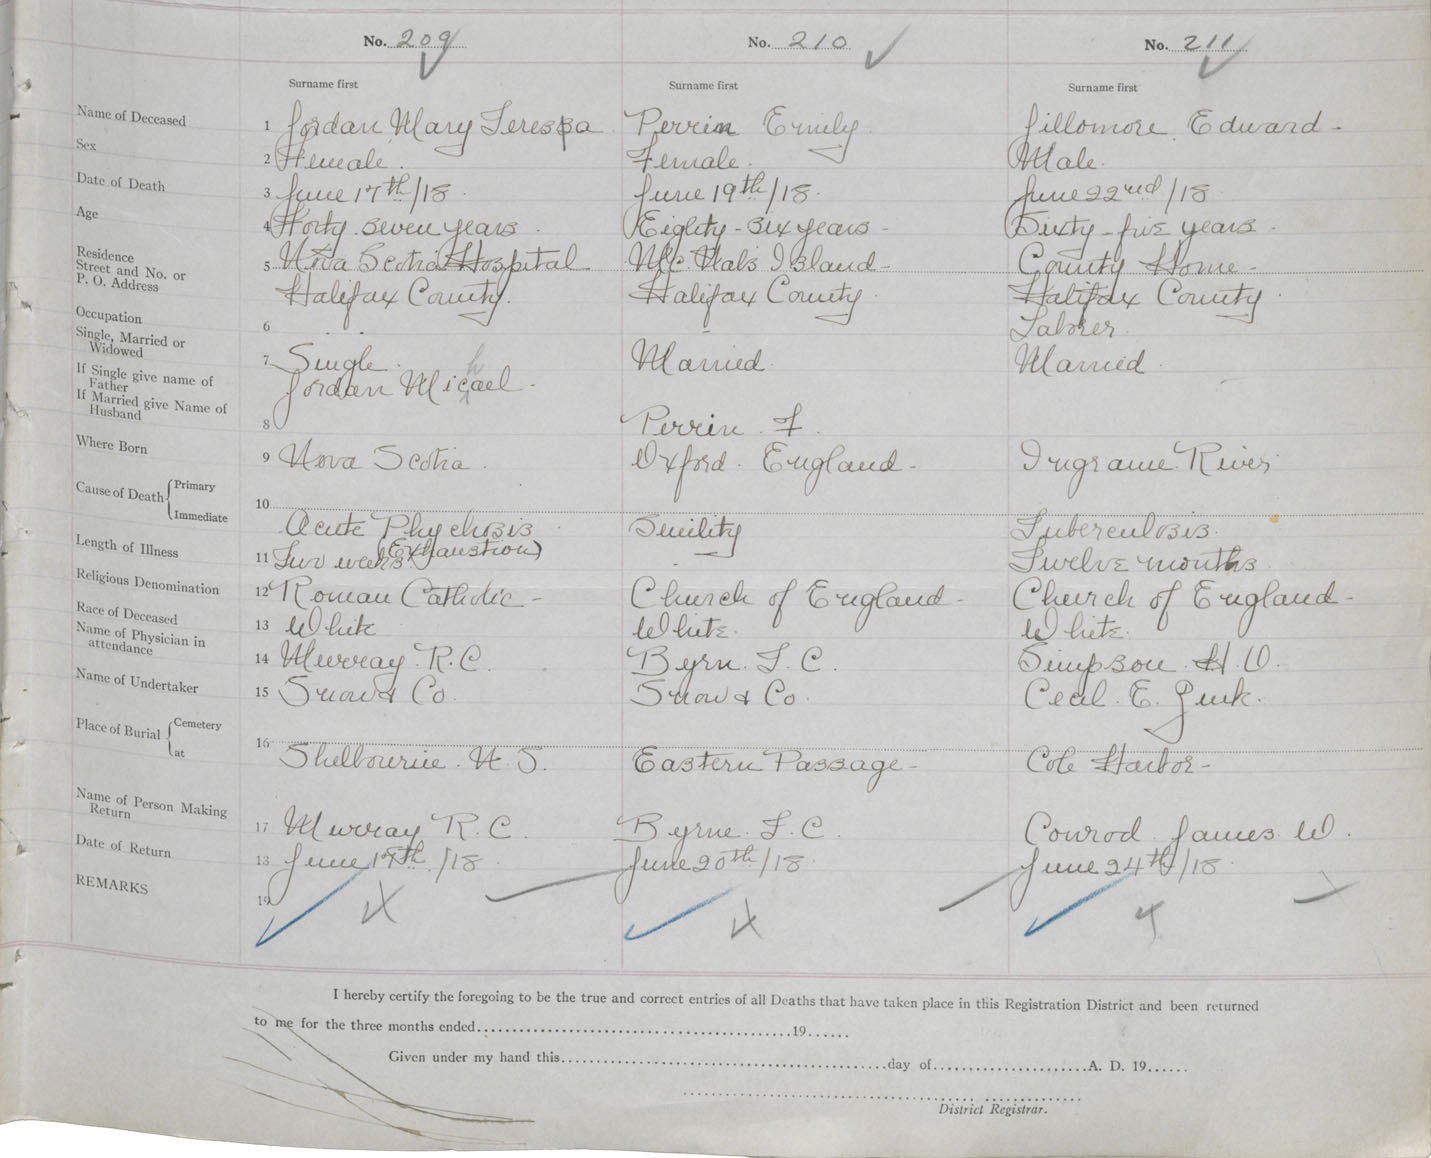 No. 209 No. 210 No. 211
Surname first Surname first Surname first
Name of Deceased 1 Jordan Mary Teressa Perrin Emily Fillomore Edward -
Sex 2 Female. Female. Male.
Date of Death 3 June 17th/18. June 19th/18. June 22nd/18
Age 4 Forty seven years. Eighty-six years - Sixty-five years.
Residence
Street and No. or
P. O. Address
5 Nova Scotia Hospital Mc.Nabs Island - County Home -
Halifax County. Halifax County. Halifax County.
Occupation 6 - - - Laborer.
Single, Married or
Widowed
7 Single. Married. Married.
If Single give name of
Father
Jordan Michael.
If Married give Name of
Husband
8 Perrin. F.
Where Born 9 Nova Scotia. Oxford. England - Ingrame River
Cause of Death Primary
10
Immediate
Acute Phychosis Senility Tuberculosis.
(Exhaustion)
Length of Illness 11 Two weeks - Twelve months.
Religious Denomination 12 Roman Catholic - Church of England - Church of England -
Race of Deceased 13 White White. White.
Name of Physician in
attendance
14 Murray. R.C. Byrn. F. C. Simpson. H. D.
Name of Undertaker 15 Snow & Co. Snow & Co. Cecil. E. Zink.
Place of Burial Cemetery
16
at
Shelbourne. N. S. Eastern Passage - Cole Harbor -
Name of Person Making
Return
17 Murray R. C. Byrne. F. C. Conrod. James. W.
Date of Return 18 June /18. June 20th/18. June 24th/18.
REMARKS 19
I hereby certify the foregoing to be the true and correct entries of all Deaths that have taken place in this Registration District and been returned
to me for the three months ended 19
Given under my hand this day of A. D. 19
District Registrar.